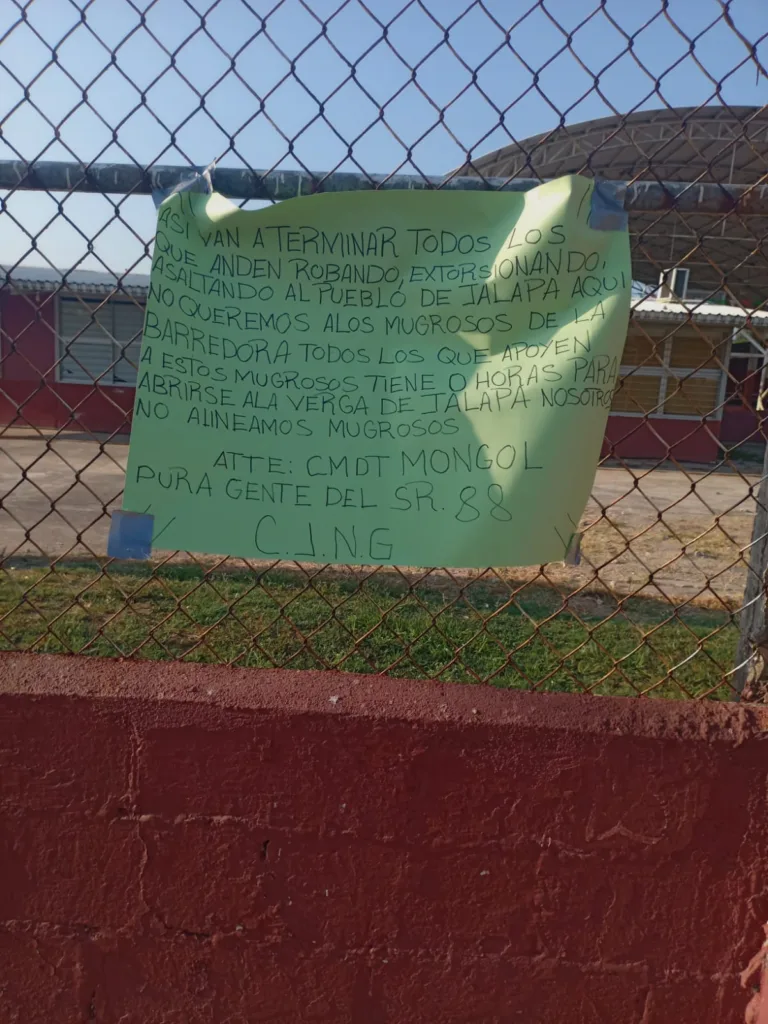 ASI VAN A TERMINAR TODOS LOS
QUE ANDEN ROBANDO, EXTORSIONANDO,
ASALTANDO AL PUEBLO DE JALAPA AQUI
NO QUEREMOS ALOS MUGROSOS DE LA
BARREDORA TODOS LOS QUE APOYEN
A ESTOS MUGROSOS TIENE 0 HORAS PARA
ABRIRSE ALA VERGA DE JALAPA NOSOTROS
NO ALINEAMOS MUGROSOS
ATTE: CMDT MONGOL
PURA GENTE DEL SR. 88
C.J.N.G